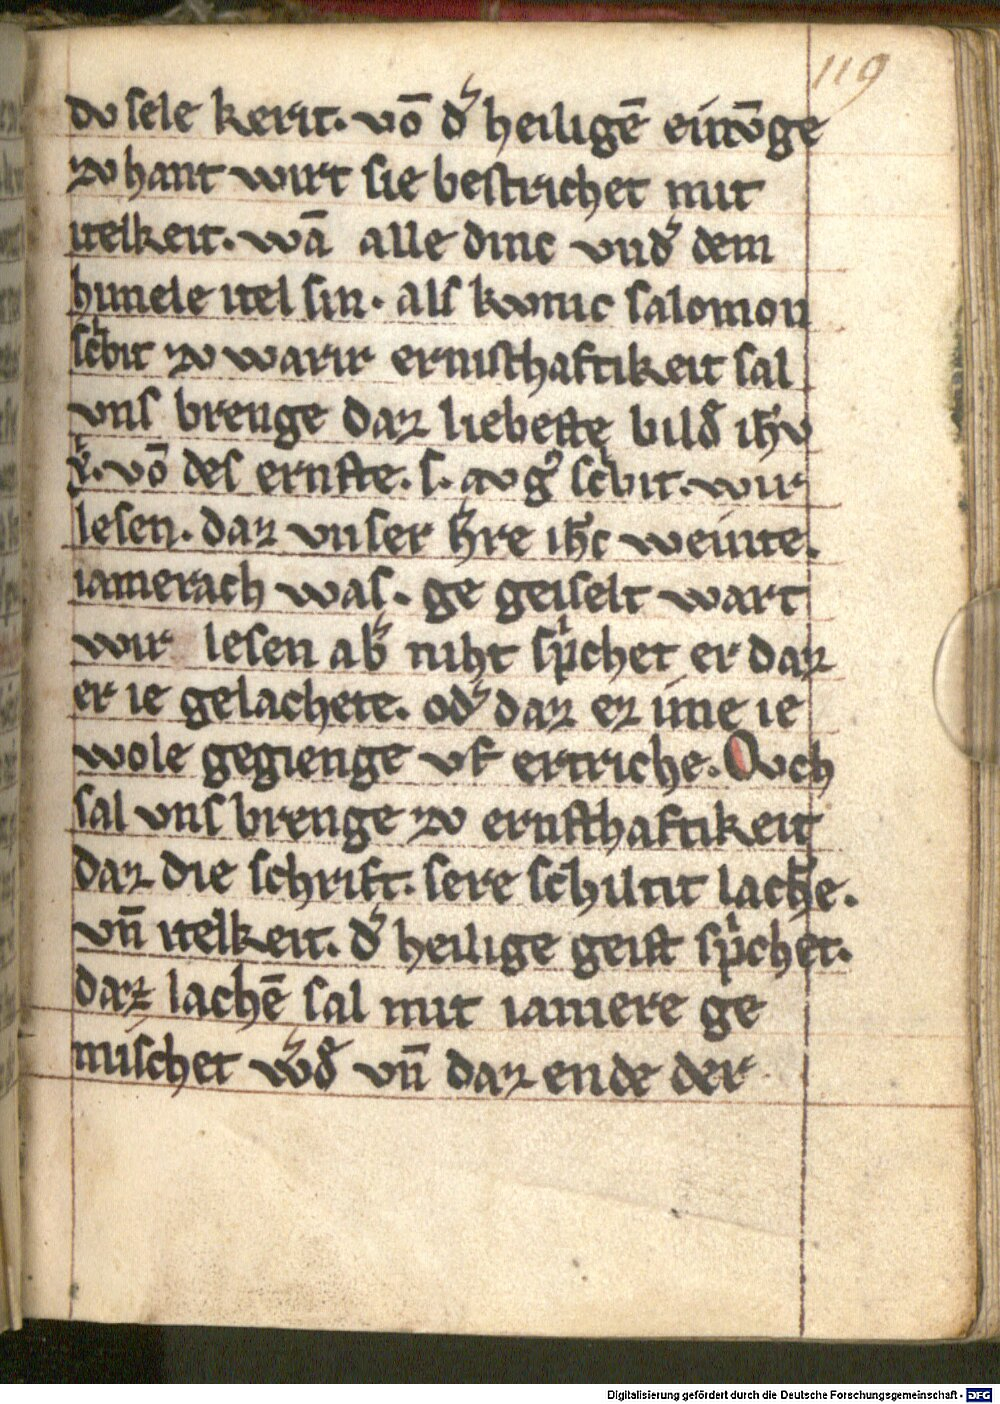 119
do sele kerit. vō d͛ heiligē einūge
zv hant wirt sie bestrichet mit
itelkeit. wā alle dinc vnd͛ dem
himele itel sin. als kvnic salomon
sch͛bit zv warir ernisthaftikeit sal
vns brenge daz liebeste bild͛ ih̄v
x͛. vō des ernste. s. avg͛ sch͛bit. wir
lesen. daz vnser h͛re ih̄c weinte.
iamerach was. ge geiselt wart
wir lesen ab͛ niht sp͛chet er daz
er ie gelachete. od͛ daz ez íme ie
wole gegienge vf ertriche. Ovch
sal vns brenge zv ernsthaftikeit
daz die schrift. sere schiltit lach͛e.
vn̄ itelkeit. d͛ heilige geist sp͛chet.
daz lachē sal mit iamere ge
mischet w͛d͛ vn̄ daz ende der
Digitalisierung gefördert durch die Deutsche Forschungsgemeinschaft - DFG